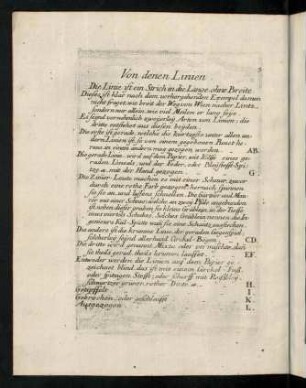 Von denen Linien
Die Linie ist ein Strich in die Länge, ohne Breite
Dieses ist klar nach dem vorhergehenden Exempel da man
nicht fraget wie breit der Weg von Wien nacher Lintz
sondern nur allein wie viel Meilen er lang seÿe
Es seÿnd vornehmlich zweÿerleÿ Arten von Linien; die
dritte entstehet aus diesen beÿden.
Die erste ist gerade, welche die kürtzeste unter allen an
dern Linien ist, so von einem gegebenen Punct he-
raus in einen andern mag gezogen werden. AB.
Die gerade Linie wird auf dem Papier, mit Hülfe eines ge-
raden Lineals, und der Feder, oder Bleÿstefft Spi-
tze, a. mit der Hand gezogen. G
Die Zimmer Leute machen es mit einer Schnur, zuvor
durch eine rothe Farb gezogen, hernach spannen
sie sie an, und lassens schnellen. Die Gärtner und Mau-
rer mit einer Schnur, welche an zweÿ Pfäle angebunden
ist, neben dieser graben sie kleine Gräblein, in der Tieffe
eines viertels Schuhes. Solches Gräblein nennen die In-
genieurs
Die andere ist die krumme Linie der geraden
solcherleÿ seÿnd allerhand Circkel-Bögen CD.
Die dritte wird genennet Mixta oder vermischte, da
sie theils gerad, theils krumm lauffet. EF.
Entweder werden die Linien auf dem Papier ge-
zeichnet blind, das ist mit einem Circkel-Fuß
oder spitzigen Steffte, oder scharff mit Reißbleÿ,
schwartzer, grüner, rother Dinte a. H.
Getippfelte I.
Gebrochen, oder K.
Ausgezogen L.